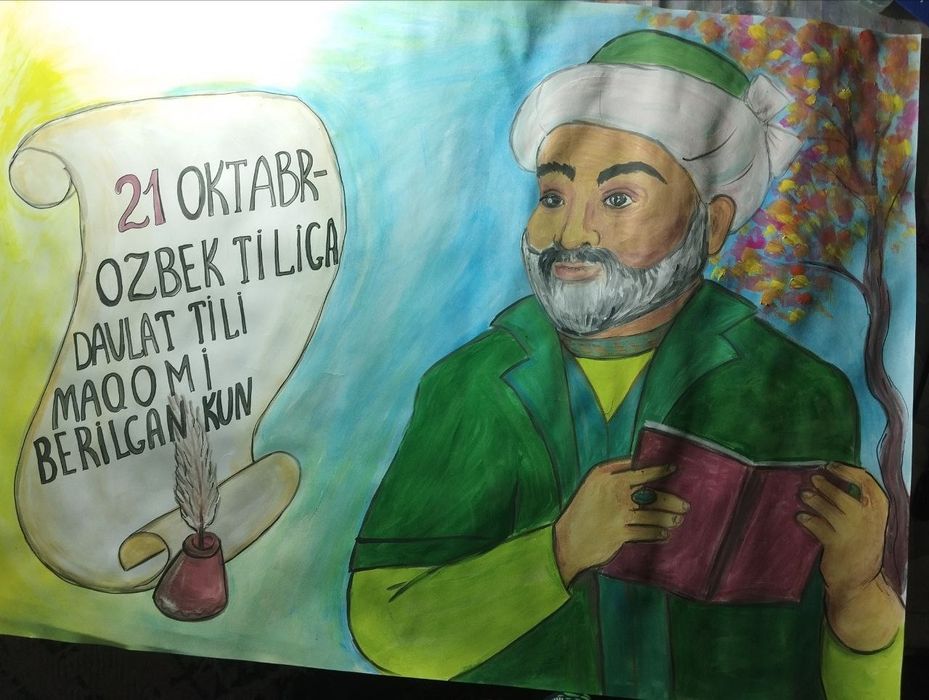 21 OKTABR-
OZBEK TILIGA
DAVLAT TILI
MAQOMI
BERILGAN KUN